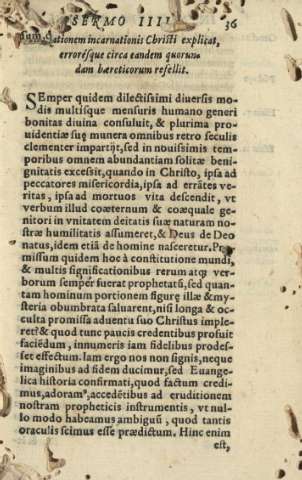 SERMO IIII 36
Incarnationem incarnationis Christi explicat,
errorésque circa eandem quorun-
dam hæreticorum refellit.
SEmper quidem dilectissimi diuersis mo-
dis multisque mensuris humano generi
bonitas diuina consuluit, & plurima pro
uidentiæ suę munera omnibus retro seculis
clementer impartijt, sed in nouissimis tem-
poribus omnem abundantiam solitæ beni-
gnitatis excessit, quando in Christo, ipsa ad
peccatores misericordia, ipsa ad errātes ve-
ritas, ipsa ad mortuos vita descendit, vt
verbum illud coæternum & coæquale ge-
nitori in vnitatem deitatis suæ naturam no-
stræ humilitatis assumeret, & Deus de Deo
natus, idem etiā de homine nasceretur. Pro
missum quidem hoc à constitutione mundi,
& multis significationibus rerum atq; ver-
borum semper fuerat prophetatū, sed quan-
tam hominum portionem figurę illæ & my-
steria obumbrata saluarent, nisi longa & oc-
culta promissa aduentu suo Christus imple-
ret? & quod tunc paucis credentibus profuit
faciēdum, innumeris iam fidelibus prodes-
set effectum. Iam ergo nos non signis, neque
imaginibus ad fidem ducimur, sed Euange-
lica historia confirmati, quod factum credi-
mus, adoramꝰ, accedētibus ad eruditionem
nostram propheticis instrumentis, vt nul-
lo modo habeamus ambiguū, quod tantis
oraculis scimus esse prædictum. Hinc enim
est,